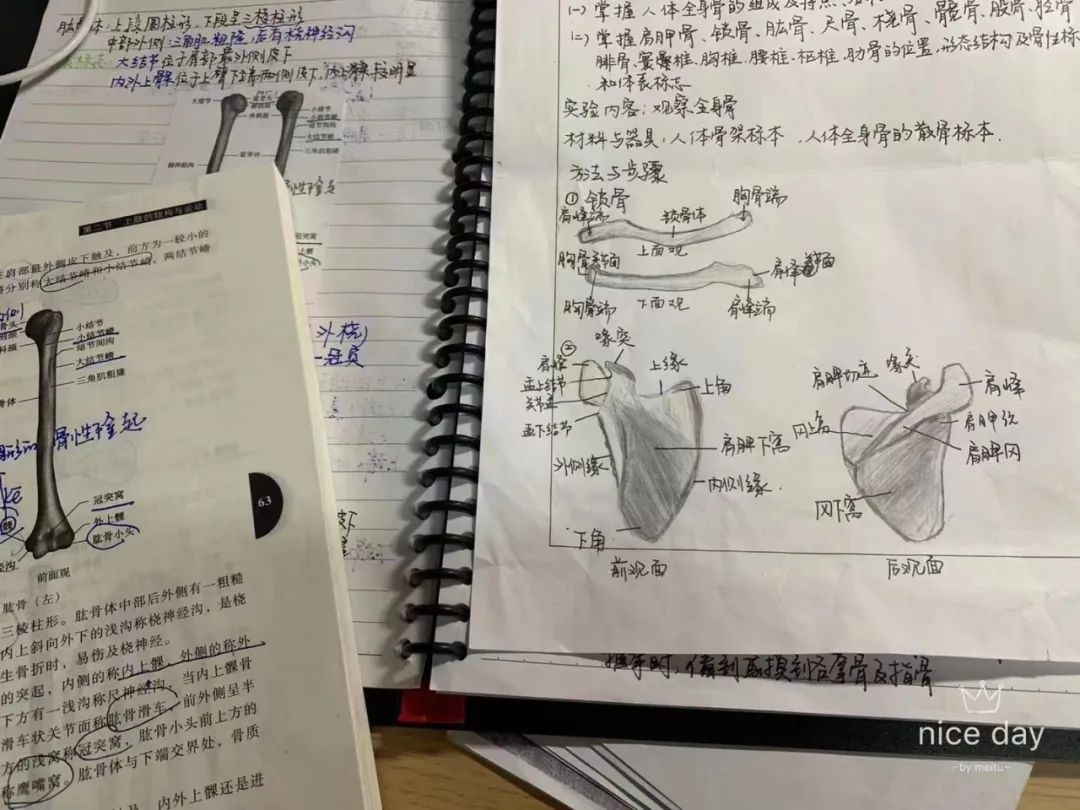 肱骨体:上段圆柱形,下段呈三棱柱形
中部外侧:三角肌粗隆,后有桡神经沟
大结节位于肩部最外侧皮下
内外上髁位于上臂下端两侧皮下,内上髁较明显
大结节
小结节
大结节嵴
三角肌粗隆
肱骨体
外桡)
第二节 上肢的结构与运动
肩部最外侧皮下触及,前方为一较小的
分别称大结节嵴和小结节嵴,两结节嵴
小结节
小结节嵴
结节间沟
大结节嵴
三角肌粗隆
骨体
骨性隆起
冠突窝
外上髁
肱骨小头
63
前面观
肱骨(左)
三棱柱形。肱骨体中部后外侧有一粗糙
内上斜向外下的浅沟称桡神经沟,是桡
生骨折时,易伤及桡神经。
的突起,内侧的称内上髁,外侧的称外
下方有一浅沟称尺神经沟。当内上髁骨
滑车状关节面称肱骨滑车,前外侧呈半
方的浅窝称冠突窝,肱骨小头前上方的
称鹰嘴窝。肱骨体与下端交界处,骨质
内外上髁还是进
(一)掌握人体全身骨的组成及特点
(二)掌握肩胛骨、锁骨、肱骨、尺骨、桡骨、髋骨、股骨、胫骨
腓骨、寰椎、胸椎、腰椎、枢椎、肋骨的位置,形态结构及骨性标
和体表标志
实验内容:观察全身骨
材料与器具:人体骨架标本,人体全身骨的散骨标本.
方法与步骤
① 锁骨
肩峰端
锁骨体
胸骨端
上面观
胸骨关节面
肩峰关节面
胸骨端
下面观
肩峰端
②
喙突
肩峰
盂上结节
关节盂
盂下结节
上缘
上角
外侧缘
肩胛下窝
内侧缘
下角
前观面
肩胛切迹
喙突
肩峰
冈上窝
肩胛冈
冈下窝
后观面
nice day
-by meitu-